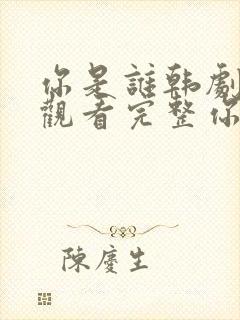 你是誰韓劇
觀看完整你
陳慶生